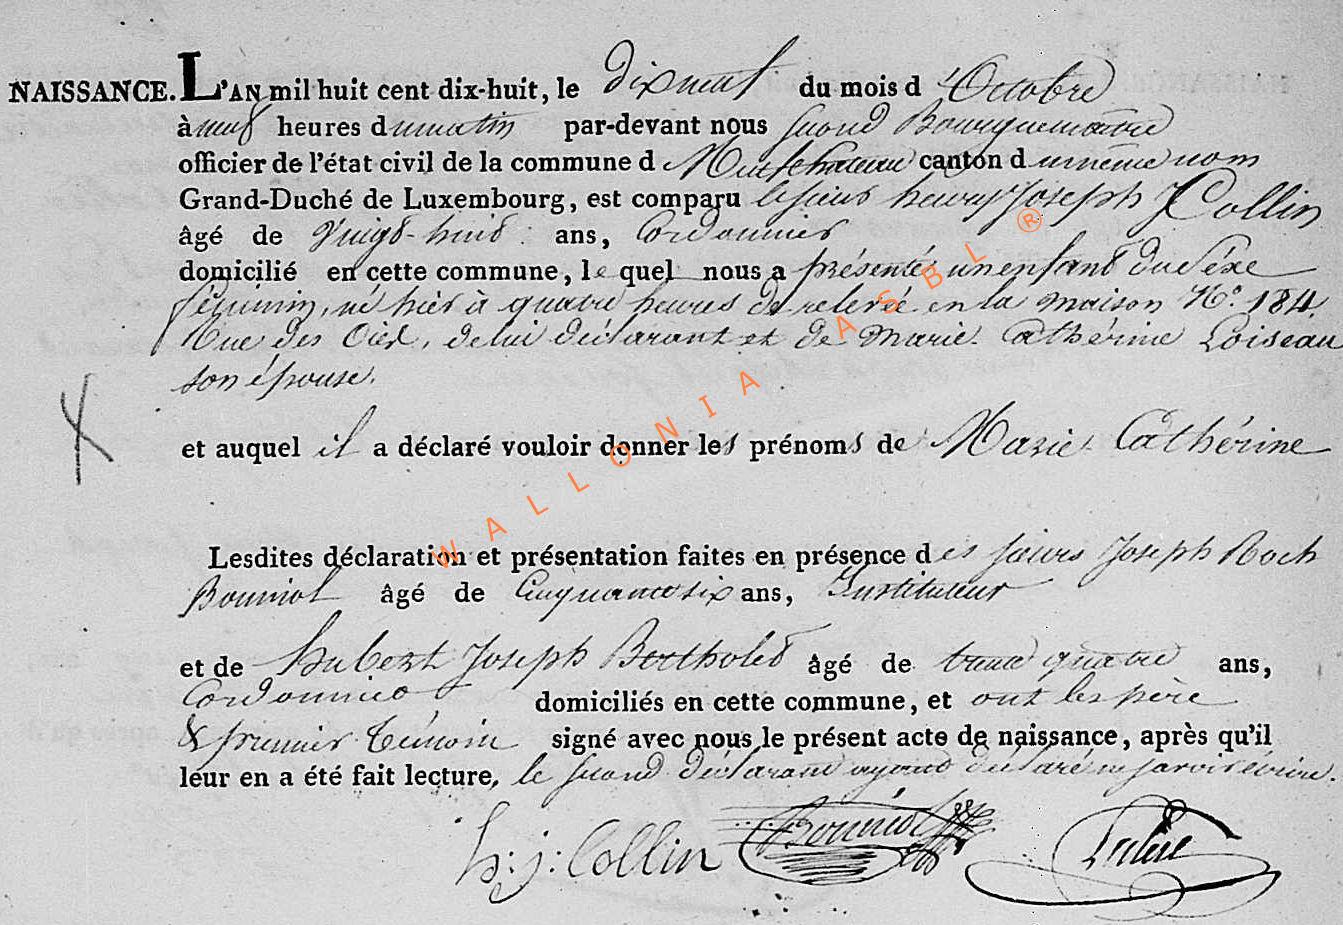 NAISSANCE. L'AN mil huit cent dix-huit, le dixneuf du mois d'Octobre
à neuf heures du matin par-devant nous second Bourguemaitre
officier de l'état civil de la commune d Neufchateau canton du même nom
Grand-Duché de Luxembourg, est comparu le sieur henry Joseph Collin
âgé de vingt-huit ans, Cordonnier
domicilié en cette commune, lequel nous a présenté un enfant du Séxe
féminin, né hier à quatre heures de relevée en la maison No. 184,
Rue des , de lui déclarant et de Marie Cathérine Loiseau
son épouse.
et auquel il a déclaré vouloir donner les prénoms de Marie Cathérine
Lesdites déclaration et présentation faites en présence des sieurs Joseph Roch
âgé de Cinquantesix ans, Instituteur
et de hubert Joseph Bertholet âgé de trente quatre ans,
Cordonnier domiciliés en cette commune, et ont les père
& premier témoin signé avec nous le présent acte de naissance, après qu'il
leur en a été fait lecture, le second déclarant ayant déclaré ne savoir écrire.
h: j: Collin
WALLONIA ASBL ®